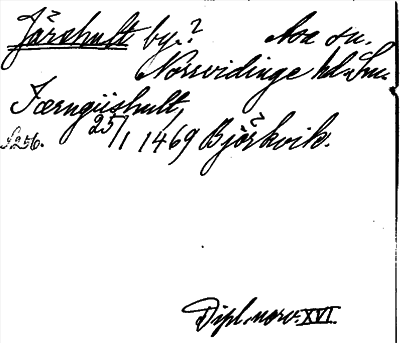 Järahult by.? Asa sn.
Norrvidinge hd. Sm.
Jærngiishult,
s. 256. 25/1 1469 Björkvik.
Dipl. norv. XVI.